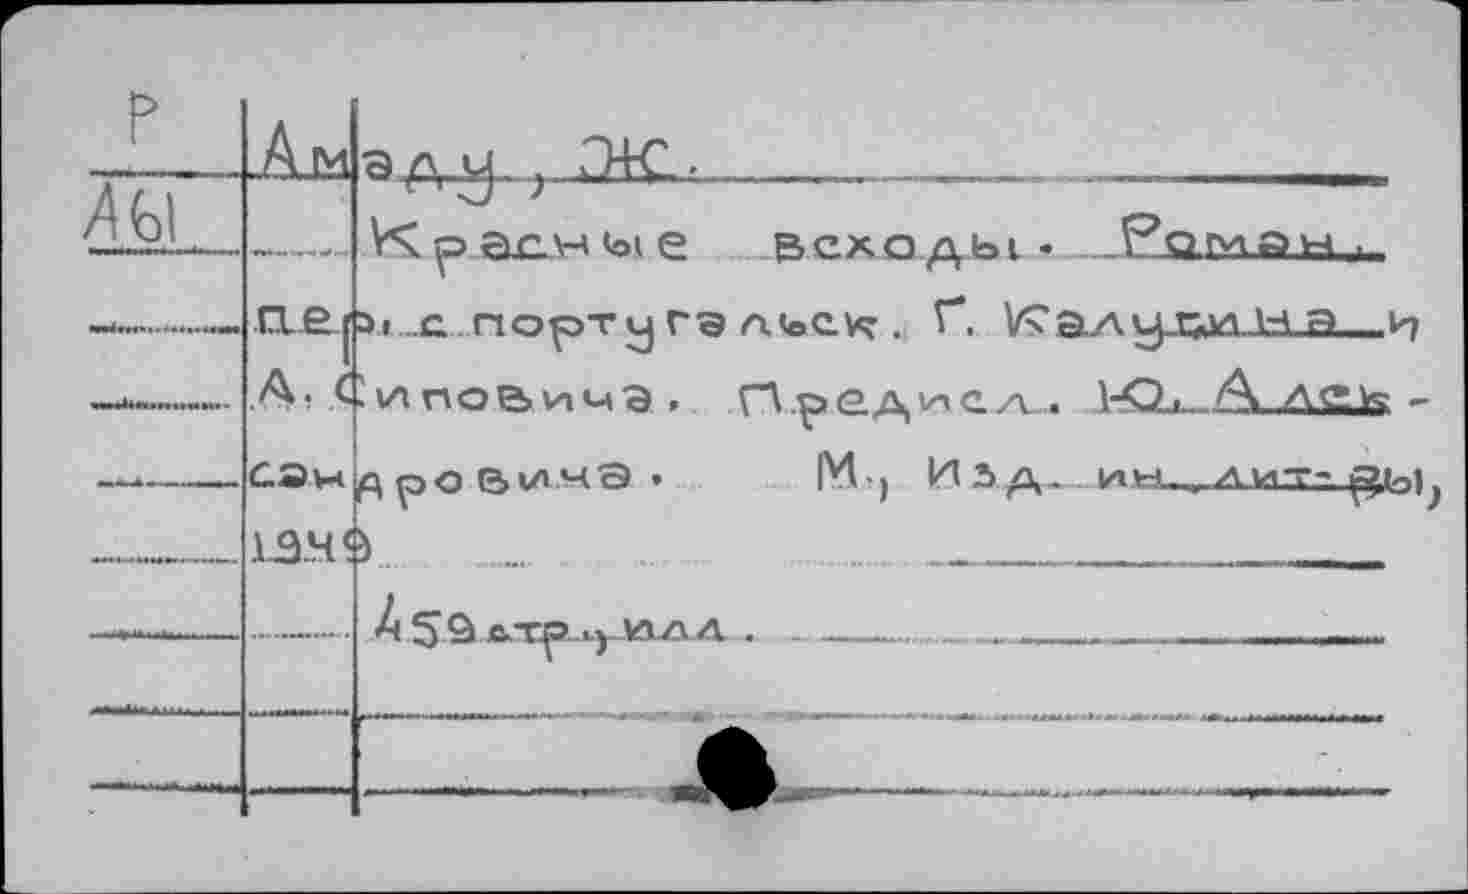 Р
Амаду, Ж.
А61
Красные всходы. Роман.
пер. с португальск. Г. Калугина и
А. Сиповича. Предисл. Ю. Алек-
сандровича. М., Изд. ин. лит-ры,
1949
459 стр., илл.